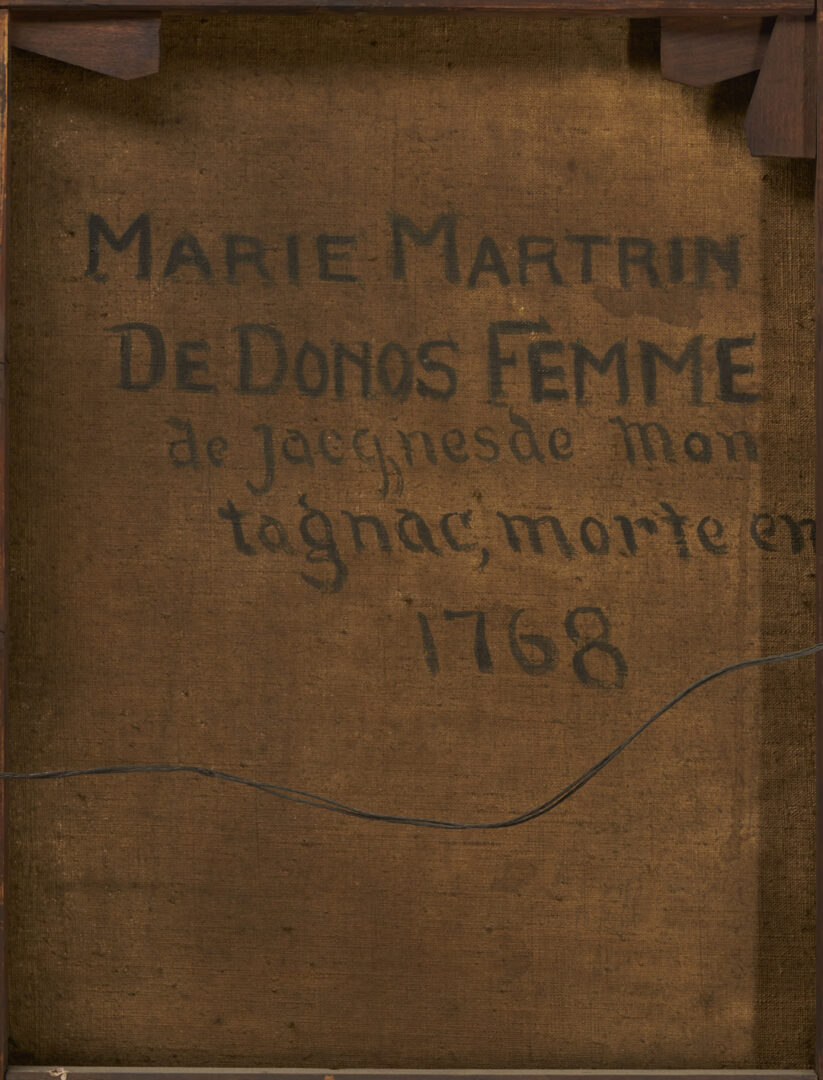 MARIE MARTRIN
DE DONOS FEMME
de Jacqnes de Mon
tagnac, morte en
1768